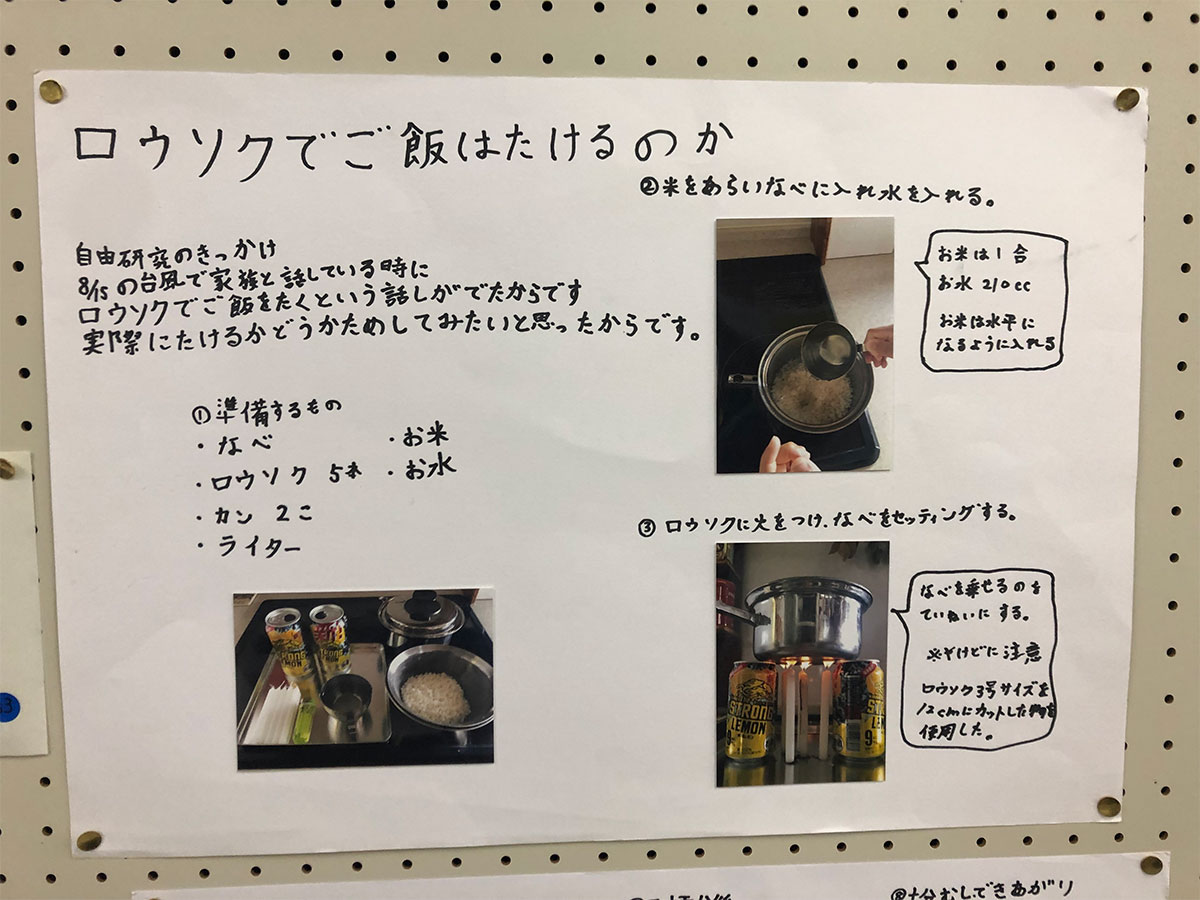 ロウソクでご飯はたけるのか
自由研究のきっかけ
8/15の台風で家族と話している時に
ロウソクでご飯をたくという話しがでたからです
実際にたけるかどうかためしてみたいと思ったからです。
①準備するもの
・なべ
・ロウソク 5本
・カン 2こ
・ライター
・お米
・お水
②米をあらいなべに入れ水を入れる。
お米は1合
お水210cc
お米は水平に
なるように入れる
③ロウソクに火をつけ、なべをセッティングする。
なべを乗せるのを
ていねいにする。
※やけどに注意
ロウソク3号サイズを
12cmにカットした物を
使用した。
STRONG
LEMON
9
STRONG
LEMON
9
STRONG
LEMON
13
⑧十分むしできあがり